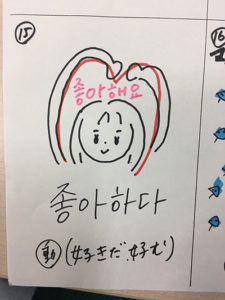 ⑮
좋아해요
좋아하다
動 (好きだ、好む)